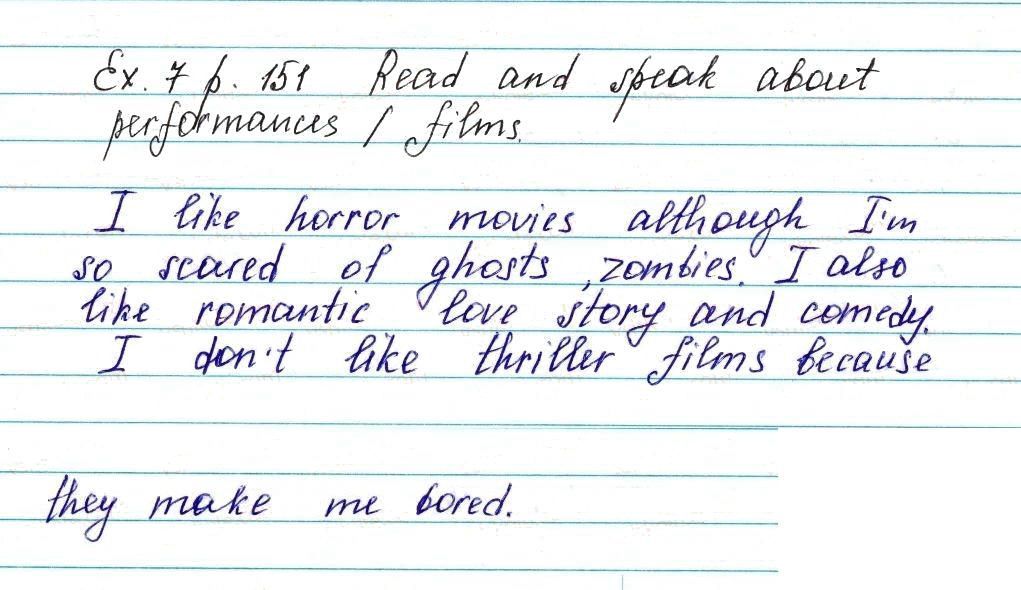 Ex. 7 p. 151 Read and speak about
performances / films.
I like horror movies although I'm
so scared of ghosts, zombies. I also
like romantic love story and comedy.
I don't like thriller films because
they make me bored.